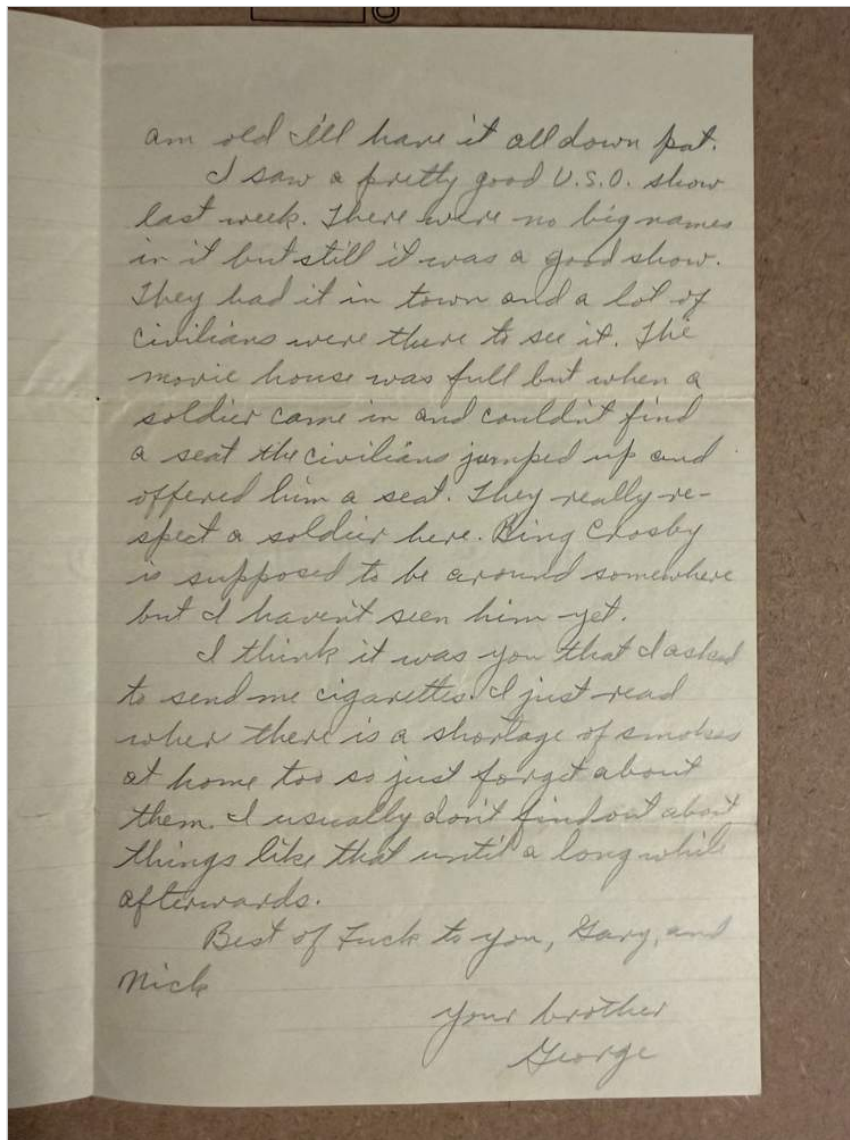 am old I'll have it all down pat.
I saw a pretty good U.S.O. show
last week. There were no big names
in it but still it was a good show.
They had it in town and a lot of
civilians were there to see it. The
movie house was full but when a
soldier came in and couldn't find
a seat the civilians jumped up and
offered him a seat. They really re-
spect a soldier here. Bing Crosby
is supposed to be around somewhere
but I haven't seen him yet.
I think it was you that I asked
to send me cigarettes. I just read
wher there is a shortage of smokes
at home too so just forget about
them. I usually don't find out about
things like that until a long while
afterwards.
Best of Luck to you, Gary, and
Nick
Your brother
George